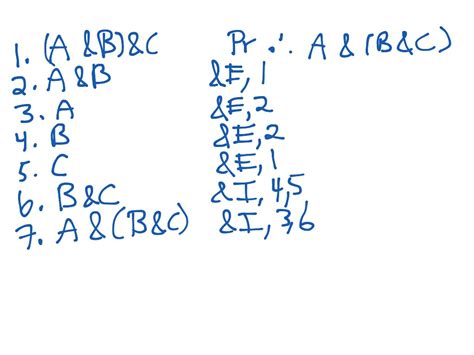 1. (A &B)&C Pr ∴ A & (B&C)
2. A &B &E, 1
3. A &E, 2
4. B &E, 2
5. C &E, 1
6. B&C &I, 4,5
7. A &(B&C) &I, 3,6